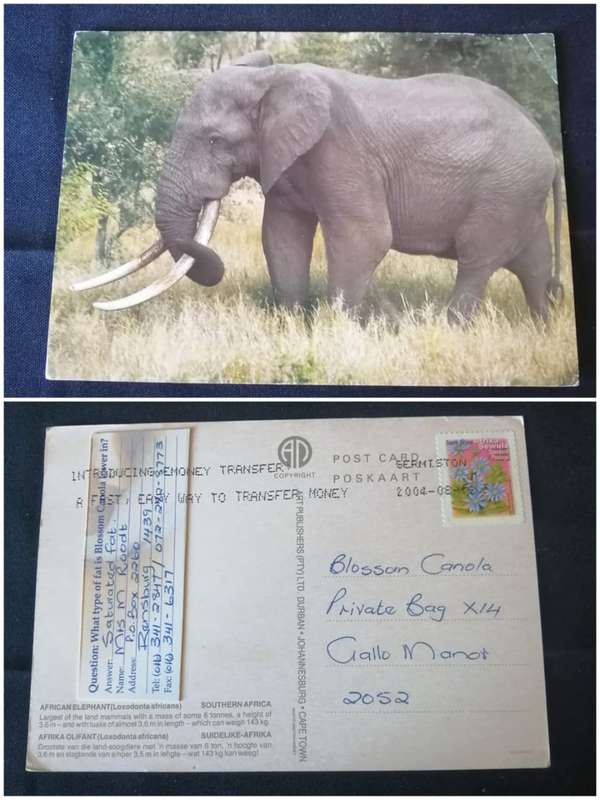 INTRODUCING EMONEY TRANSFER,
A FAST, EASY WAY TO TRANSFER MONEY
GERMISTON
2004-08
COPYRIGHT
POST CARD
POSKAART
Blossom Canola
Private Bag X14
Gallo Manor
2052
Question: What type of fat is Blossom Canola lower in?
Answer: Saturated fat.
Name: Mrs M Roodt
Address: P.O. Box 2260
Ransburg 1439
Tel: (011) 341-2847/ 072-
Fax: (011) 341-6317
ART PUBLISHERS (PTY) LTD. DURBAN • JOHANNESBURG • CAPE TOWN
AFRICAN ELEPHANT (Loxodonta africana) SOUTHERN AFRICA
Largest of the land mammals with a mass of some 6 tonnes, a height of
3,6 m – and with tusks of almost 3,6 m in length – which can weigh 143 kg.
AFRIKA OLIFANT (Loxodonta africana) SUIDELIKE-AFRIKA
Grootste van die land-soogdiere met 'n masse van 6 ton, 'n hoogte van
3,6 m en slagtande van amper 3,5 m in lengte – wat 143 kg kan weeg!